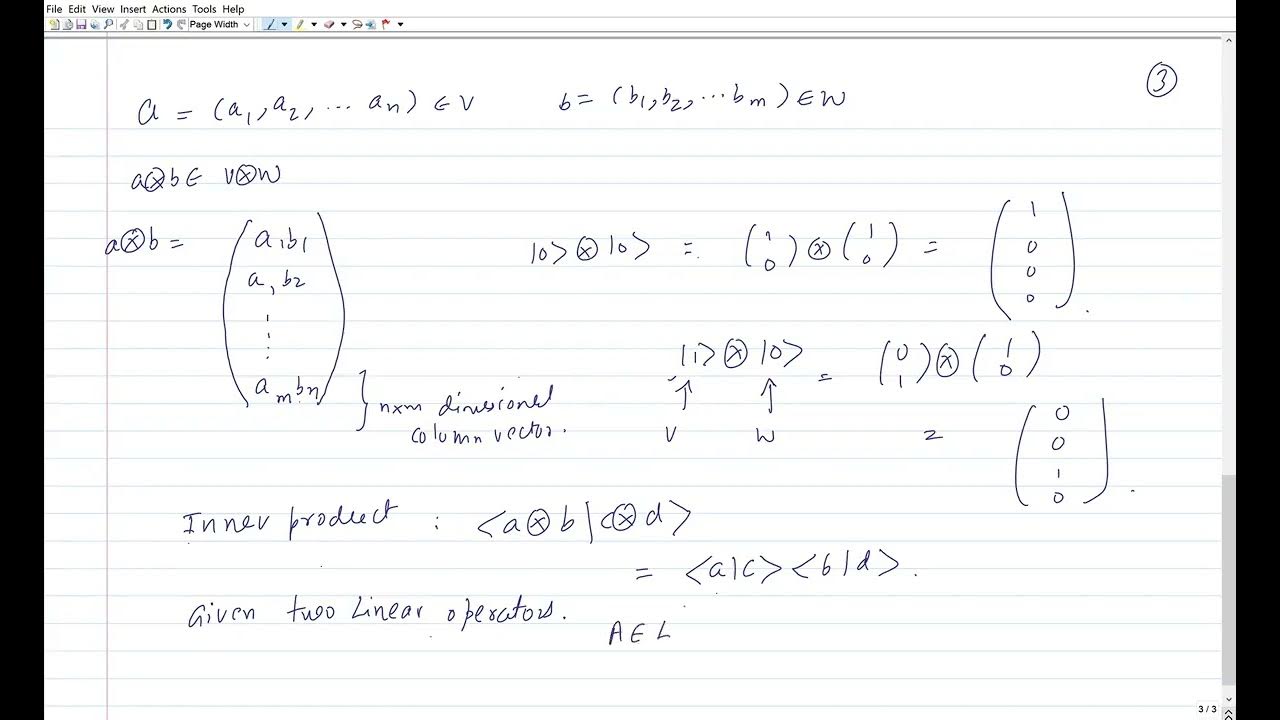 File Edit View Insert Actions Tools Help
Page Width
③
a = (a₁, a₂, ... aₙ) ∈ V
b = (b₁, b₂, ... bₘ) ∈ W
a⊗b ∈ V⊗W
a⊗b = (a₁b₁
a₁b₂
⋮
aₘbₙ)
} n×m dimesional
column vector.
|0> ⊗ |0> = (1 0) ⊗ (1 0) = (1 0 0 0).
|1> ⊗ |0> = (0 1) ⊗ (1 0)
↑ ↑
V W
= (0 0 1 0).
Inner product : <a⊗b|c⊗d>
= <a|c><b|d>.
Given two Linear operators.
A ∈ L
3 / 3